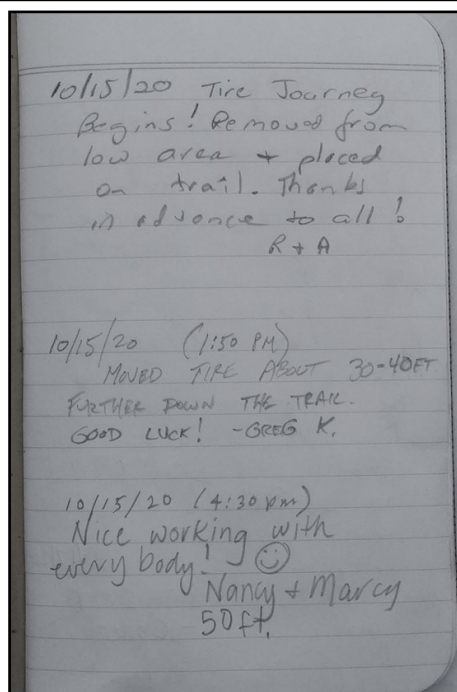 10/15/20 Tire Journey
Begins! Removed from
low area + placed
on trail. Thanks
in advance to all!
R + A
10/15/20 (1:50 PM)
MOVED TIRE ABOUT 30-40FT
FURTHER DOWN THE TRAIL.
GOOD LUCK! -GREG K.
10/15/20 (4:30 pm)
Nice working with
every body! ☺
Nancy + Marcy
50ft.